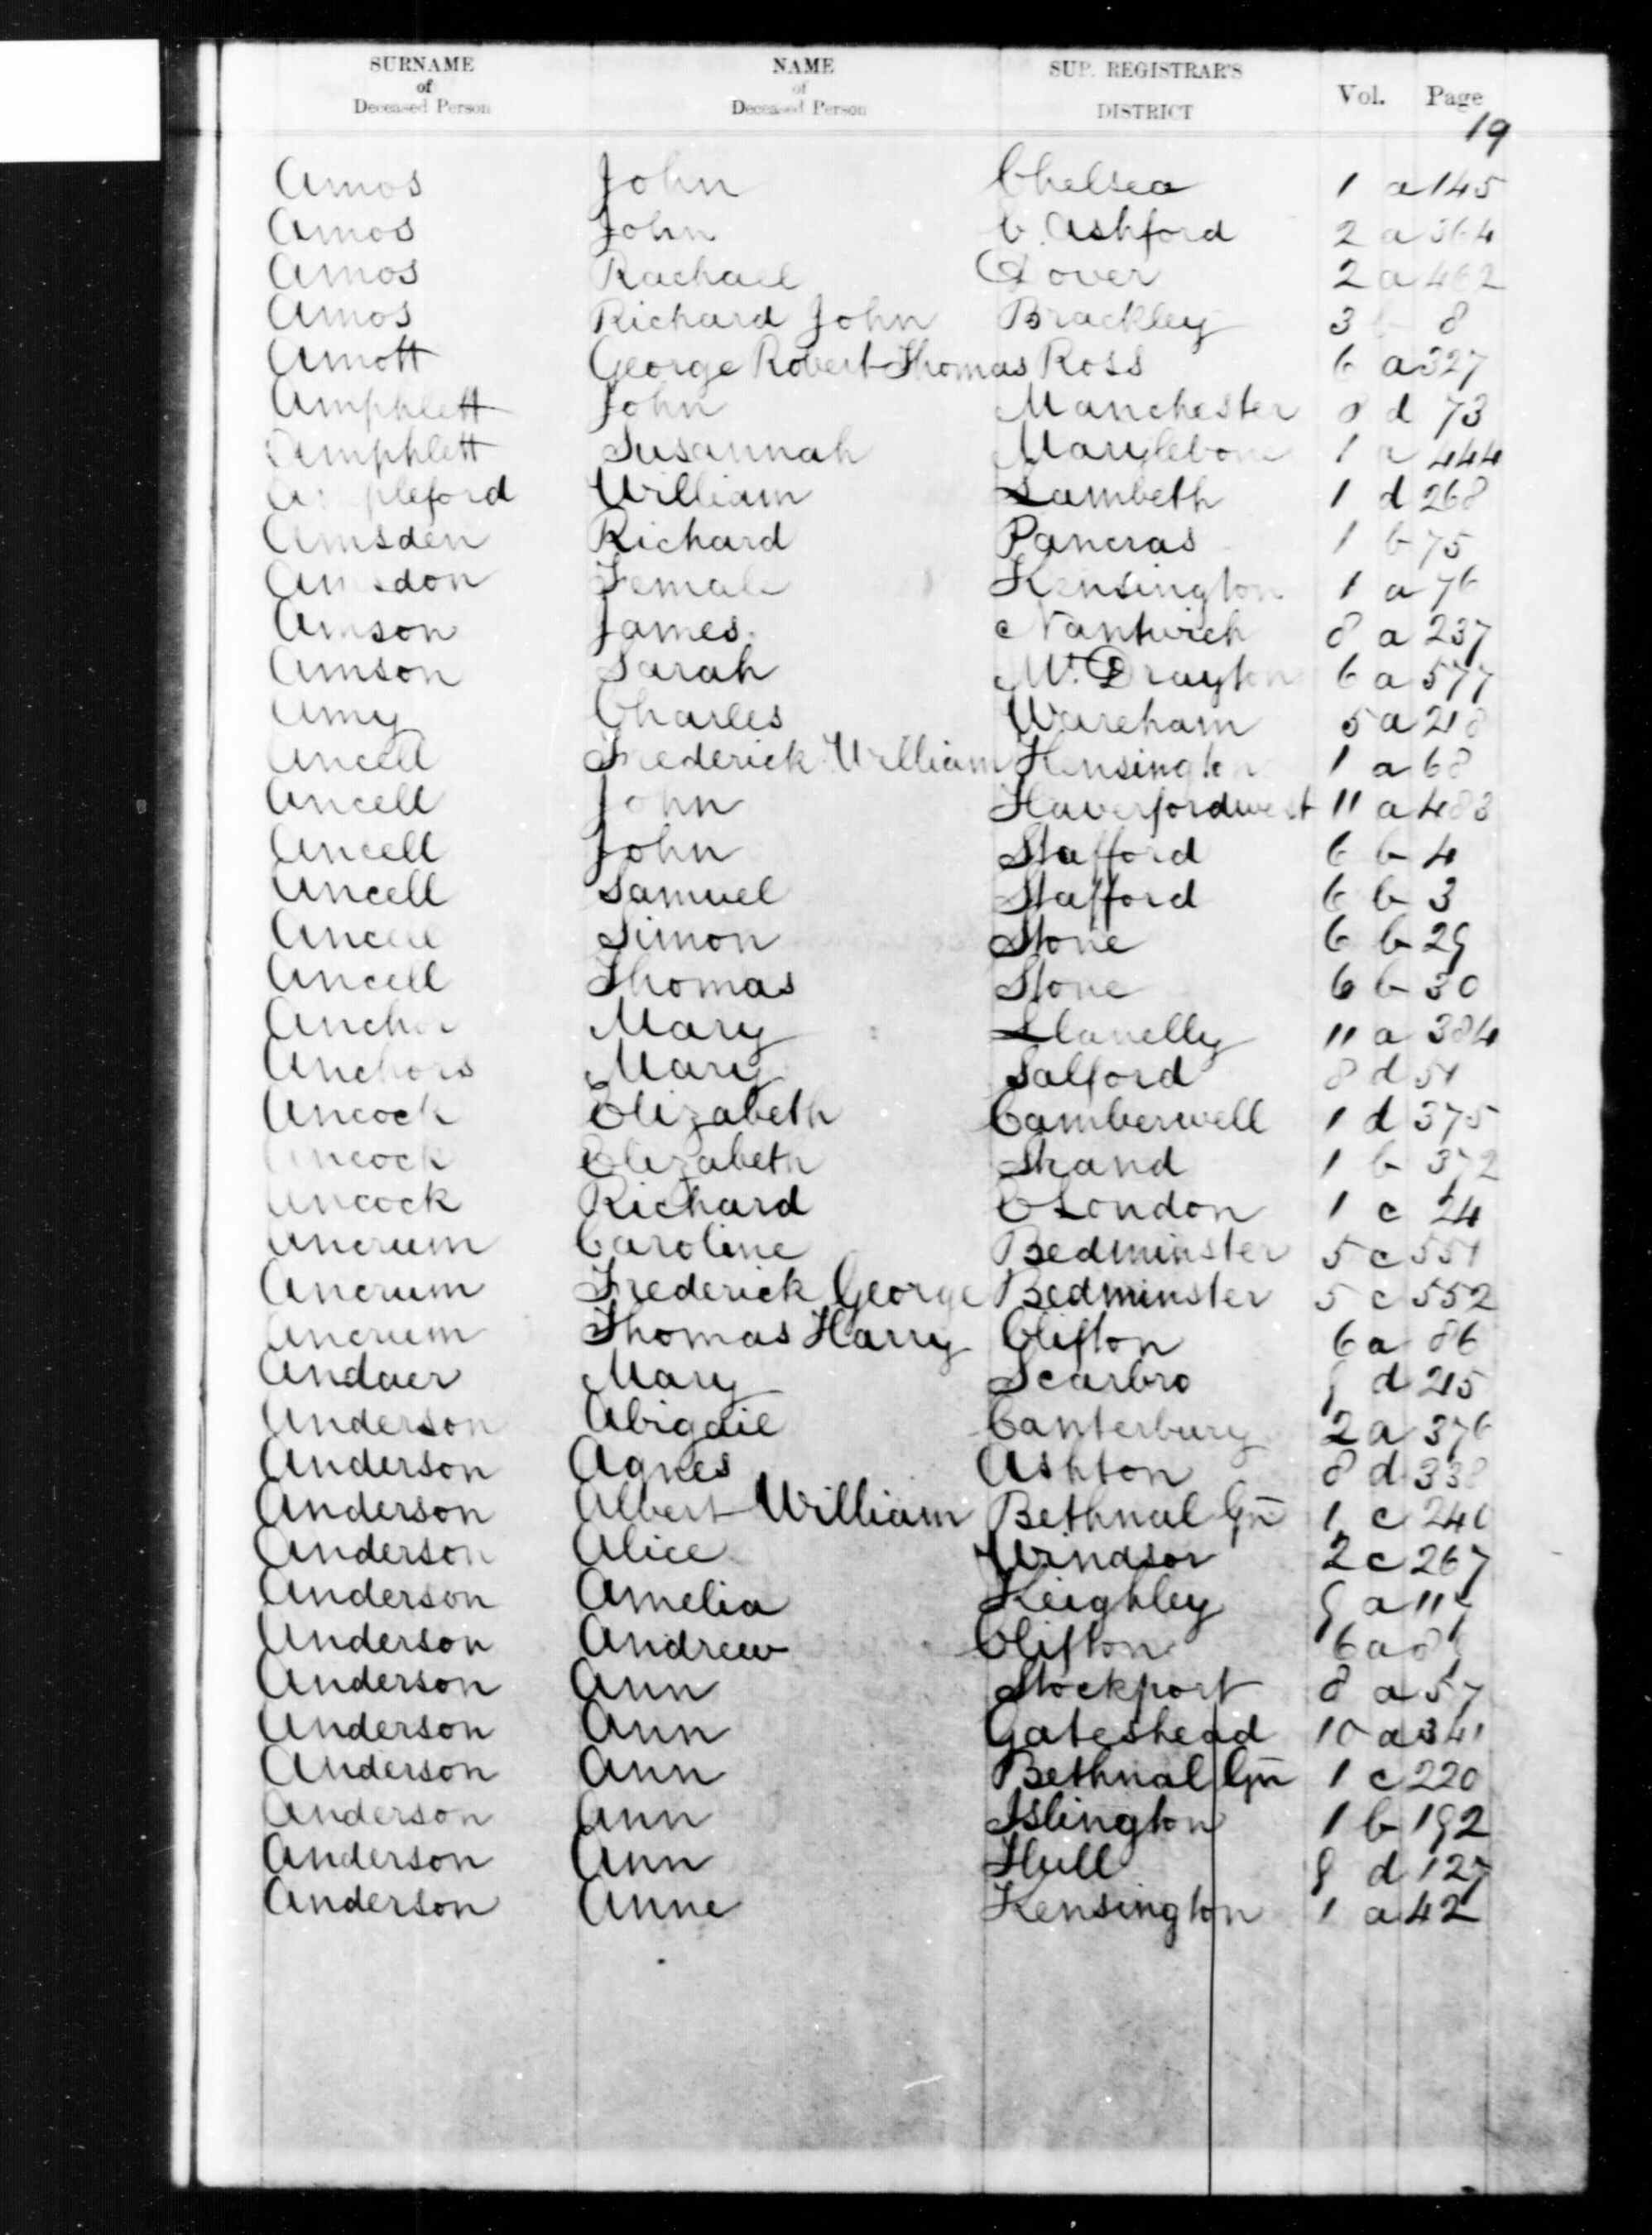 SURNAME NAME SUP. REGISTRAR'S Vol. Page
of of
Deceased Person Deceased Person DISTRICT
19
Amos John Chelsea 1 a 145
Amos John E. Ashford 2 a 364
Amos Rachael Dover 2 a 462
Amos Richard John Brackley 3 b 8
Amott George Robert Thomas Ross 6 a 327
Amphlett John Manchester 8 d 73
Amphlett Susannah Marylebone 1 a 444
William Lambeth 1 d 268
Amsden Richard Pancras 1 b 75
Amsdon Female Kensington 1 a 76
Amson James Nantwich 8 a 237
Amson Sarah Mt. Drayton 6 a 577
Amy Charles Wareham 5 a 218
Ancell Frederick William Kensington 1 a 68
Ancell John Haverfordwest 11 a 483
Ancell John Stafford 6 b 4
Ancell Samuel Stafford 6 b 3
Ancell Simon Stone 6 b 29
Ancell Thomas Stone 6 b 30
Anchor Mary Llanelly 11 a 384
Anchors Mary Salford 8 d 51
Ancock Elizabeth Camberwell 1 d 375
Ancock Elizabeth Strand 1 b 372
Ancock Richard E London 1 c 24
Ancrum Caroline Bedminster 5 c 551
Ancrum Frederick George Bedminster 5 c 552
Ancrum Thomas Harry Clifton 6 a 86
Andaer Mary Scarbro 9 d 215
Anderson Abigail Canterbury 2 a 376
Anderson Agnes Ashton 8 d 338
Anderson Albert William Bethnal Gn 1 c
Anderson Alice Windsor 2 c 267
Anderson Amelia Keighley 9 a
Anderson Andrew Clifton 6 a
Anderson Ann Stockport 8 a 57
Anderson Ann Gateshead 10 a 341
Anderson Ann Bethnal Gn 1 c 220
Anderson Ann Islington 1 b 192
Anderson Ann Hull 9 d 127
Anderson Anne Kensington 1 a 42